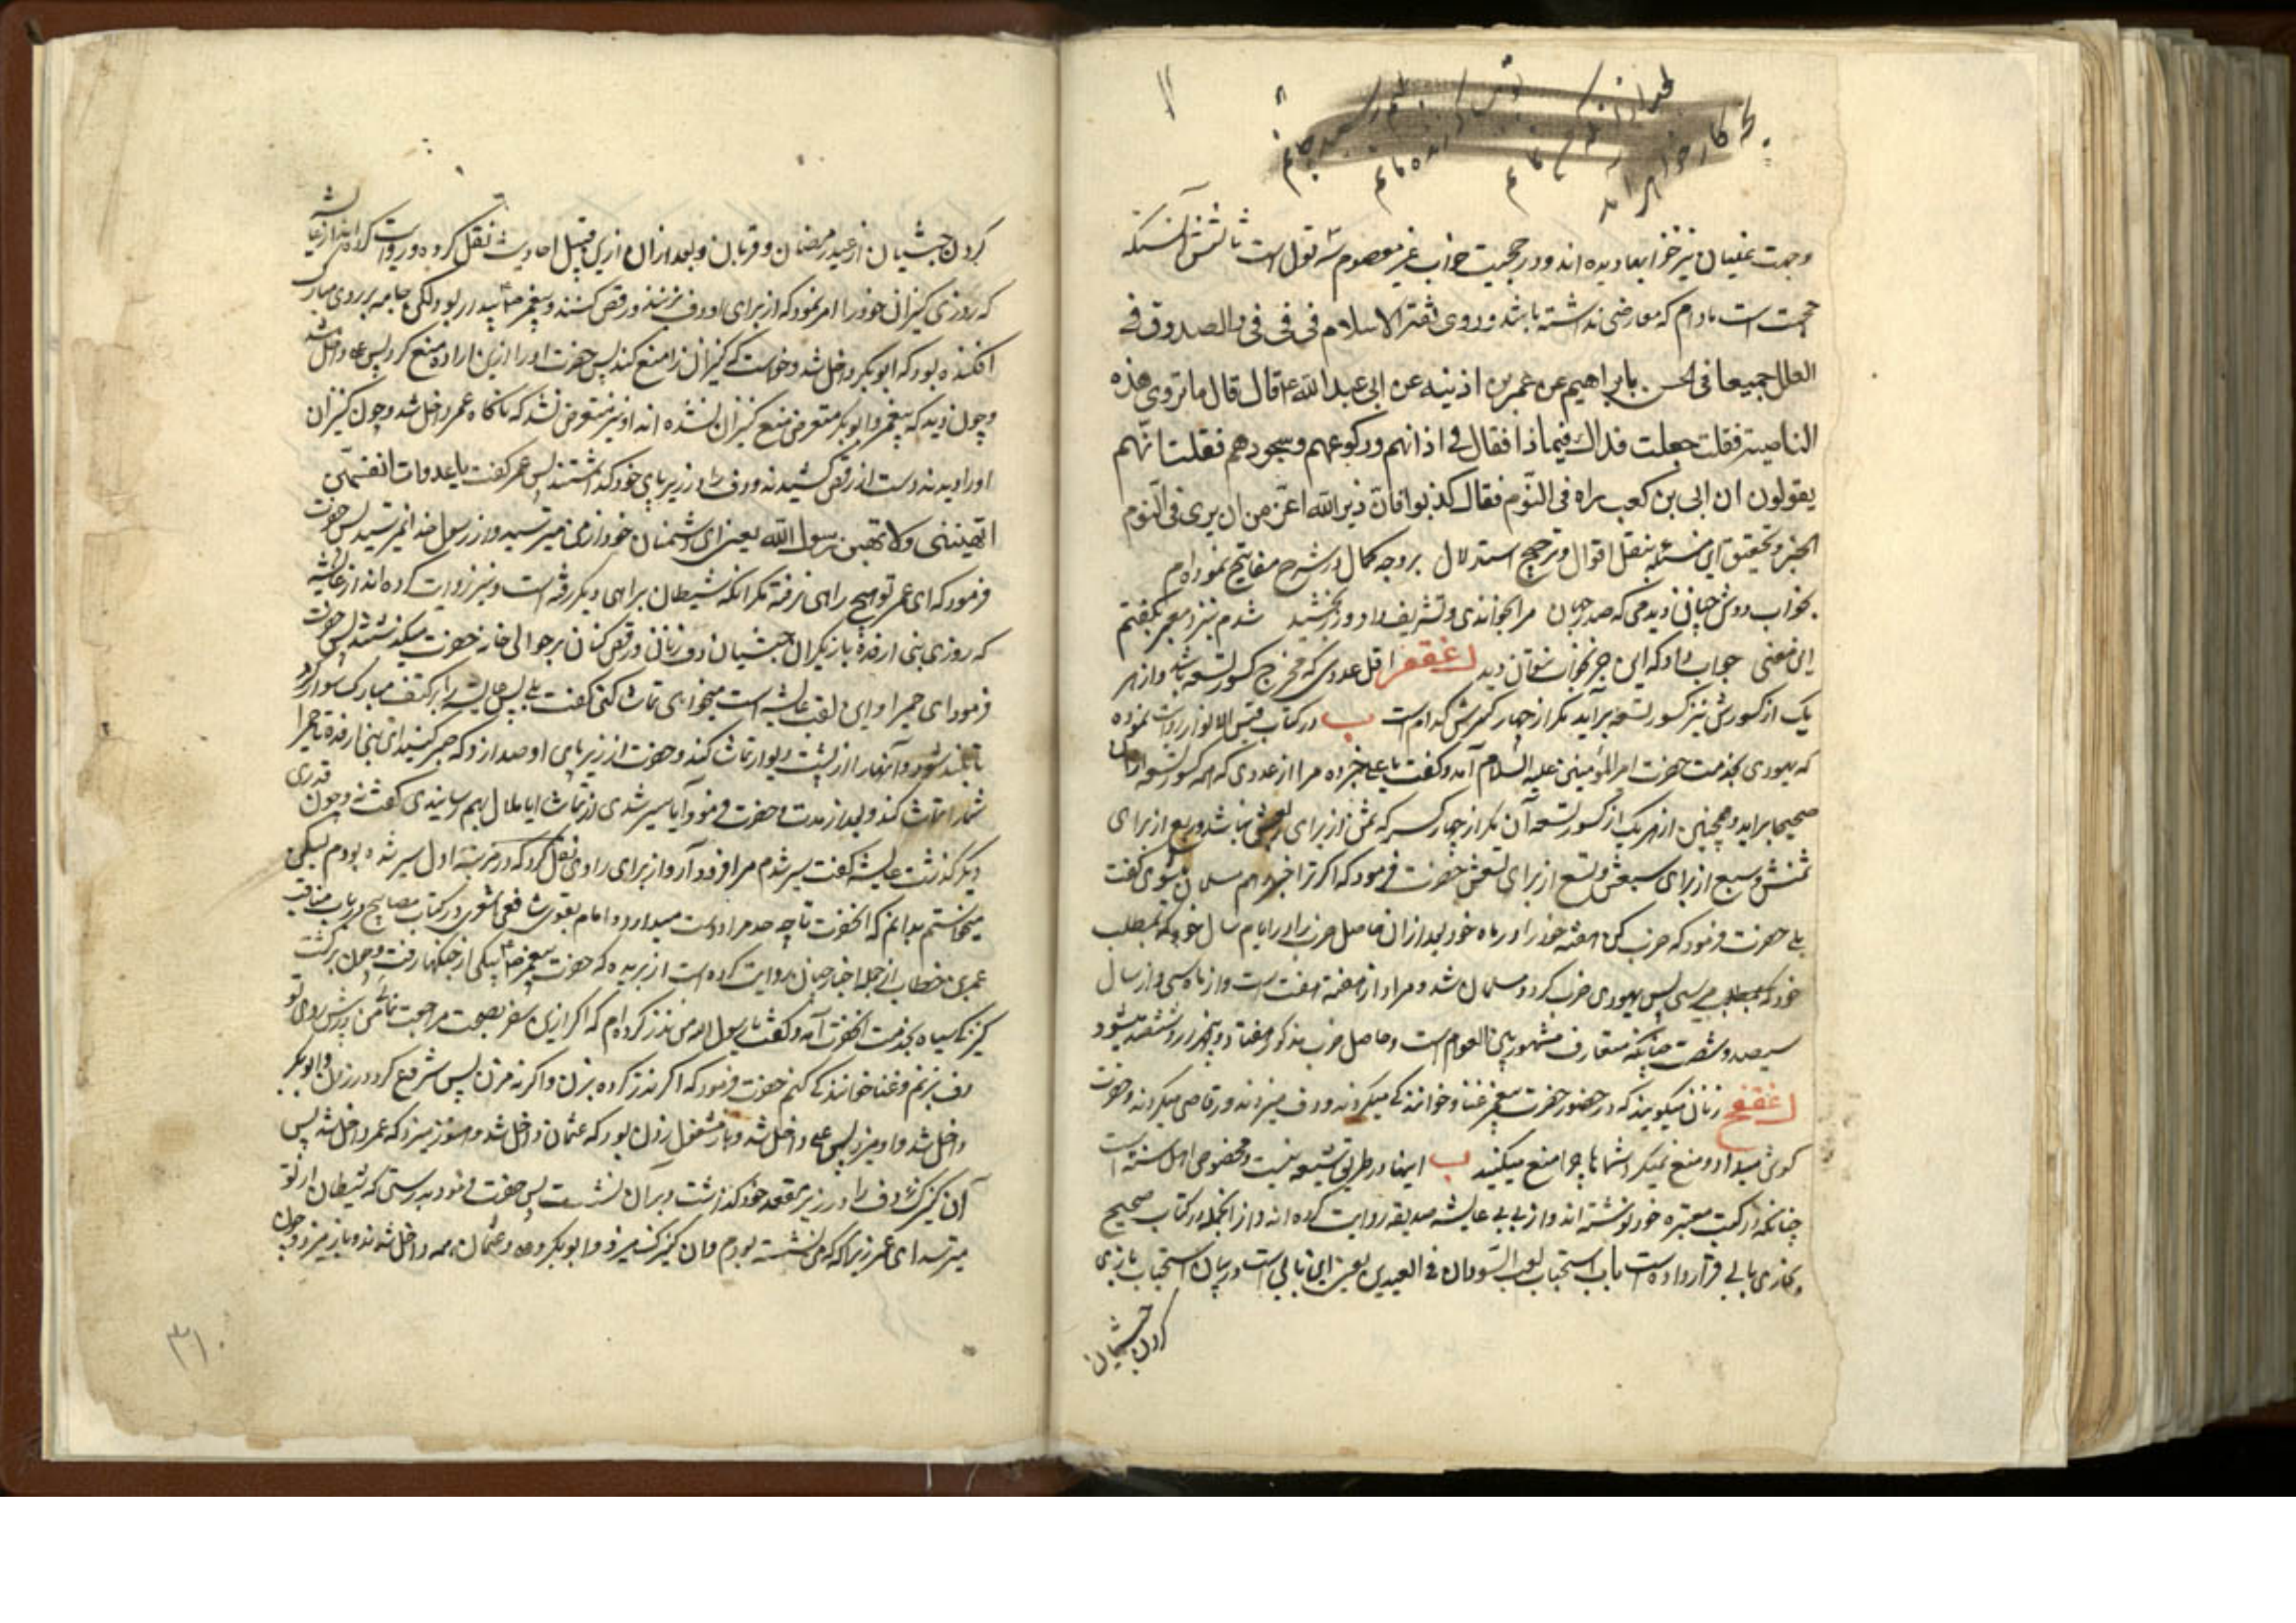 وجدت عینیان نیز خوابها دیده اند و در حجیت خواب غیر معصوم سه قول است ثالثش آنستکه
حجت است مادام که معارضی نداشته باشد و روی ثقة الاسلام فی فی فی فی والصدوق فی
العلل جمیعا فی الحسن بابراهیم عن عمر بن اذینه عن ابی عبد الله ع قال قال ما تروی هذه
الناصبة فقلت جعلت فداک فیما ذا فقال فی اذانهم ورکوعهم وسجودهم فقلت انّهم
یقولون ان ابی بن کعب راه فی النّوم فقال کذبوا فانّ دین الله اعزّ من ان یری فی النّوم
الخبر و تحقیق این مسئله بنقل اقوال و ترجیح استدلال بر وجه کمال در شرح مفاتیح نموده ام
بخواب دوش چنان دیدمی که صدر جهان مرا بخواندی و تشریف داد و زر بخشید شدم بنزد معبر بگفتم
این معنی جواب داد که این جز بخواب نتوان دید غقفز اقل عددی که مخرج کسور تسعه باشد و از هر
یک از کسورش نیز کسور تسعه برآید مگر از چهار کسرش کدام است ب در کتاب قبس الانوار روایت نموده
که یهودی بخدمت حضرت امیر المؤمنین علیه السلام آمد و گفت یا علی خبر ده مرا از عددی که همه کسور تسعه از آن
صحیحا براید و همچنین از هر یک از کسور تسعه آن مگر از چهار کسر که ثمن از برای ربعش نباشد و ربع از برای
ثمنش و سبع از برای سبعش و تسع از برای تسعش حضرت فرمود که اگر ترا خبر دهم مسلمان میشوی گفت
بلی حضرت فرمود که ضرب کن هفته خود را در ماه خود بعد از ان حاصل ضرب را در ایام سال خود که بمطلب
خود که بمطلب میرسی پس یهودی ضرب کرد و مسلمان شد و مراد از هفته هفت است و از ماه سی و از سال
سیصد و شصت چنانکه متعارف مشهور بین العوام است و حاصل ضرب مذکور هفتاد و پنجهزار و ششصد میشود
غقفح زنان میگویند که در حضور حضرت پیغمبر غنا و خوانندگی میکردند و دف میزدند و رقاصی میکردند و حضرت
گوش میداد و منع نمیکرد شماها چرا منع میکنید ب اینها در طریق شیعه نیست و مخصوص اهل سنت است
چنانکه در کتب معتبره خود نوشته اند و از بی بی عایشه صدیقه روایت کرده اند و از انجمله در کتاب صحیح
بخاری بابی قرار داده است باب استحباب لعب السّودان فی العیدین یعنی این بابی است در بیان استحباب بازی
کردن حبشیان
کردن حبشیان در عید رمضان و قربان و بعد از ان ازین قبیل احادیث نقل کرده و روایت کرده اند از عایشه
که روزی کنیزان خود را امر نمود که از برای او دف بزنند و رقص کنند و پیغمبر ص بیدار بود ولکن جامه بر روی مبارک
افکنده بود که ابوبکر داخل شد و خواست که کنیزان را منع کند پس حضرت او را ازین اراده منع کرد پس داخل شد
و چون دید که پیغمبر و ابوبکر متعرض منع کنیزان نشده اند او نیز متعرض نشد که ناگاه عمر داخل شد و چون کنیزان
او را دیدند دست از رقص کشیدند و دف را در زیر پای خود گذاشتند پس عمر گفت یا عدوات انفسهنّ
اتهبننی ولا تهبن رسول الله یعنی ای دشمنان خود از من میترسید و از رسول خدا نمیترسید پس حضرت
فرمود که ای عمر تو هیچ راهی نرفته مگر انکه شیطان براهی دیگر رفته است و نیز روایت کرده اند از عایشه
که روزی بنی ارفده بازیگران حبشیان دف زنان و رقص کنان بر حوالی خانه حضرت میگذشتند پس حضرت
فرمود ای حمیرا و این لقب عایشه است میخواهی تماشا کنی گفت بلی پس عایشه را بر کتف مبارک سوار کرد
تا بلند شود و آنها را از پشت دیوار تماشا کند و حضرت از زیر پای او صدا زد که جهد کنید ای بنی ارفده تا حمیرا
شما را تماشا کند و بعد از مدتی حضرت فرمود آیا سیر شدی از تماشا آیا ملال بهم رسانیدی گفت نه و چون قدری
دیگر گذشت عایشه گفت سیر شدم مرا فرود آر و از برای راوی نقل کرد که در مرتبه اول سیر شده بودم لیکن
میخواستم بدانم که انحضرت تا چه حد مرا دوست میدارد و امام بغوی شافعی اشعری در کتاب مصابیح در باب مناقب
عمر بن خطاب از جمله اخبار حسان روایت کرده است از بریده که حضرت پیغمبر ص بیکی از جنگها رفت و چون برگشت
کنیزک سیاه بخدمت انحضرت آمد و گفت یا رسول الله من نذر کرده ام که اگر ازین سفر بصحت مراجعت نمائی من در پیش روی تو
دف بزنم و غنا خوانندگی کنم حضرت فرمود که اگر نذر کرده بزن و اگر نه مزن پس شروع کرد در زدن و ابوبکر
داخل شد و او میزد پس علی داخل شد و باز مشغول زدن بود که عثمان داخل شد و هنوز میزد که عمر داخل شد پس
آن کنیزک دف را در زیر مقعد خود گذاشت و بر آن نشست پس حضرت فرمود بدرستی که شیطان از تو
میترسد ای عمر زیرا که من نشسته بودم و ان کنیزک میزد و ابوبکر و علی و عثمان همه داخل شدند و باز میزد و چون
۳۱۰